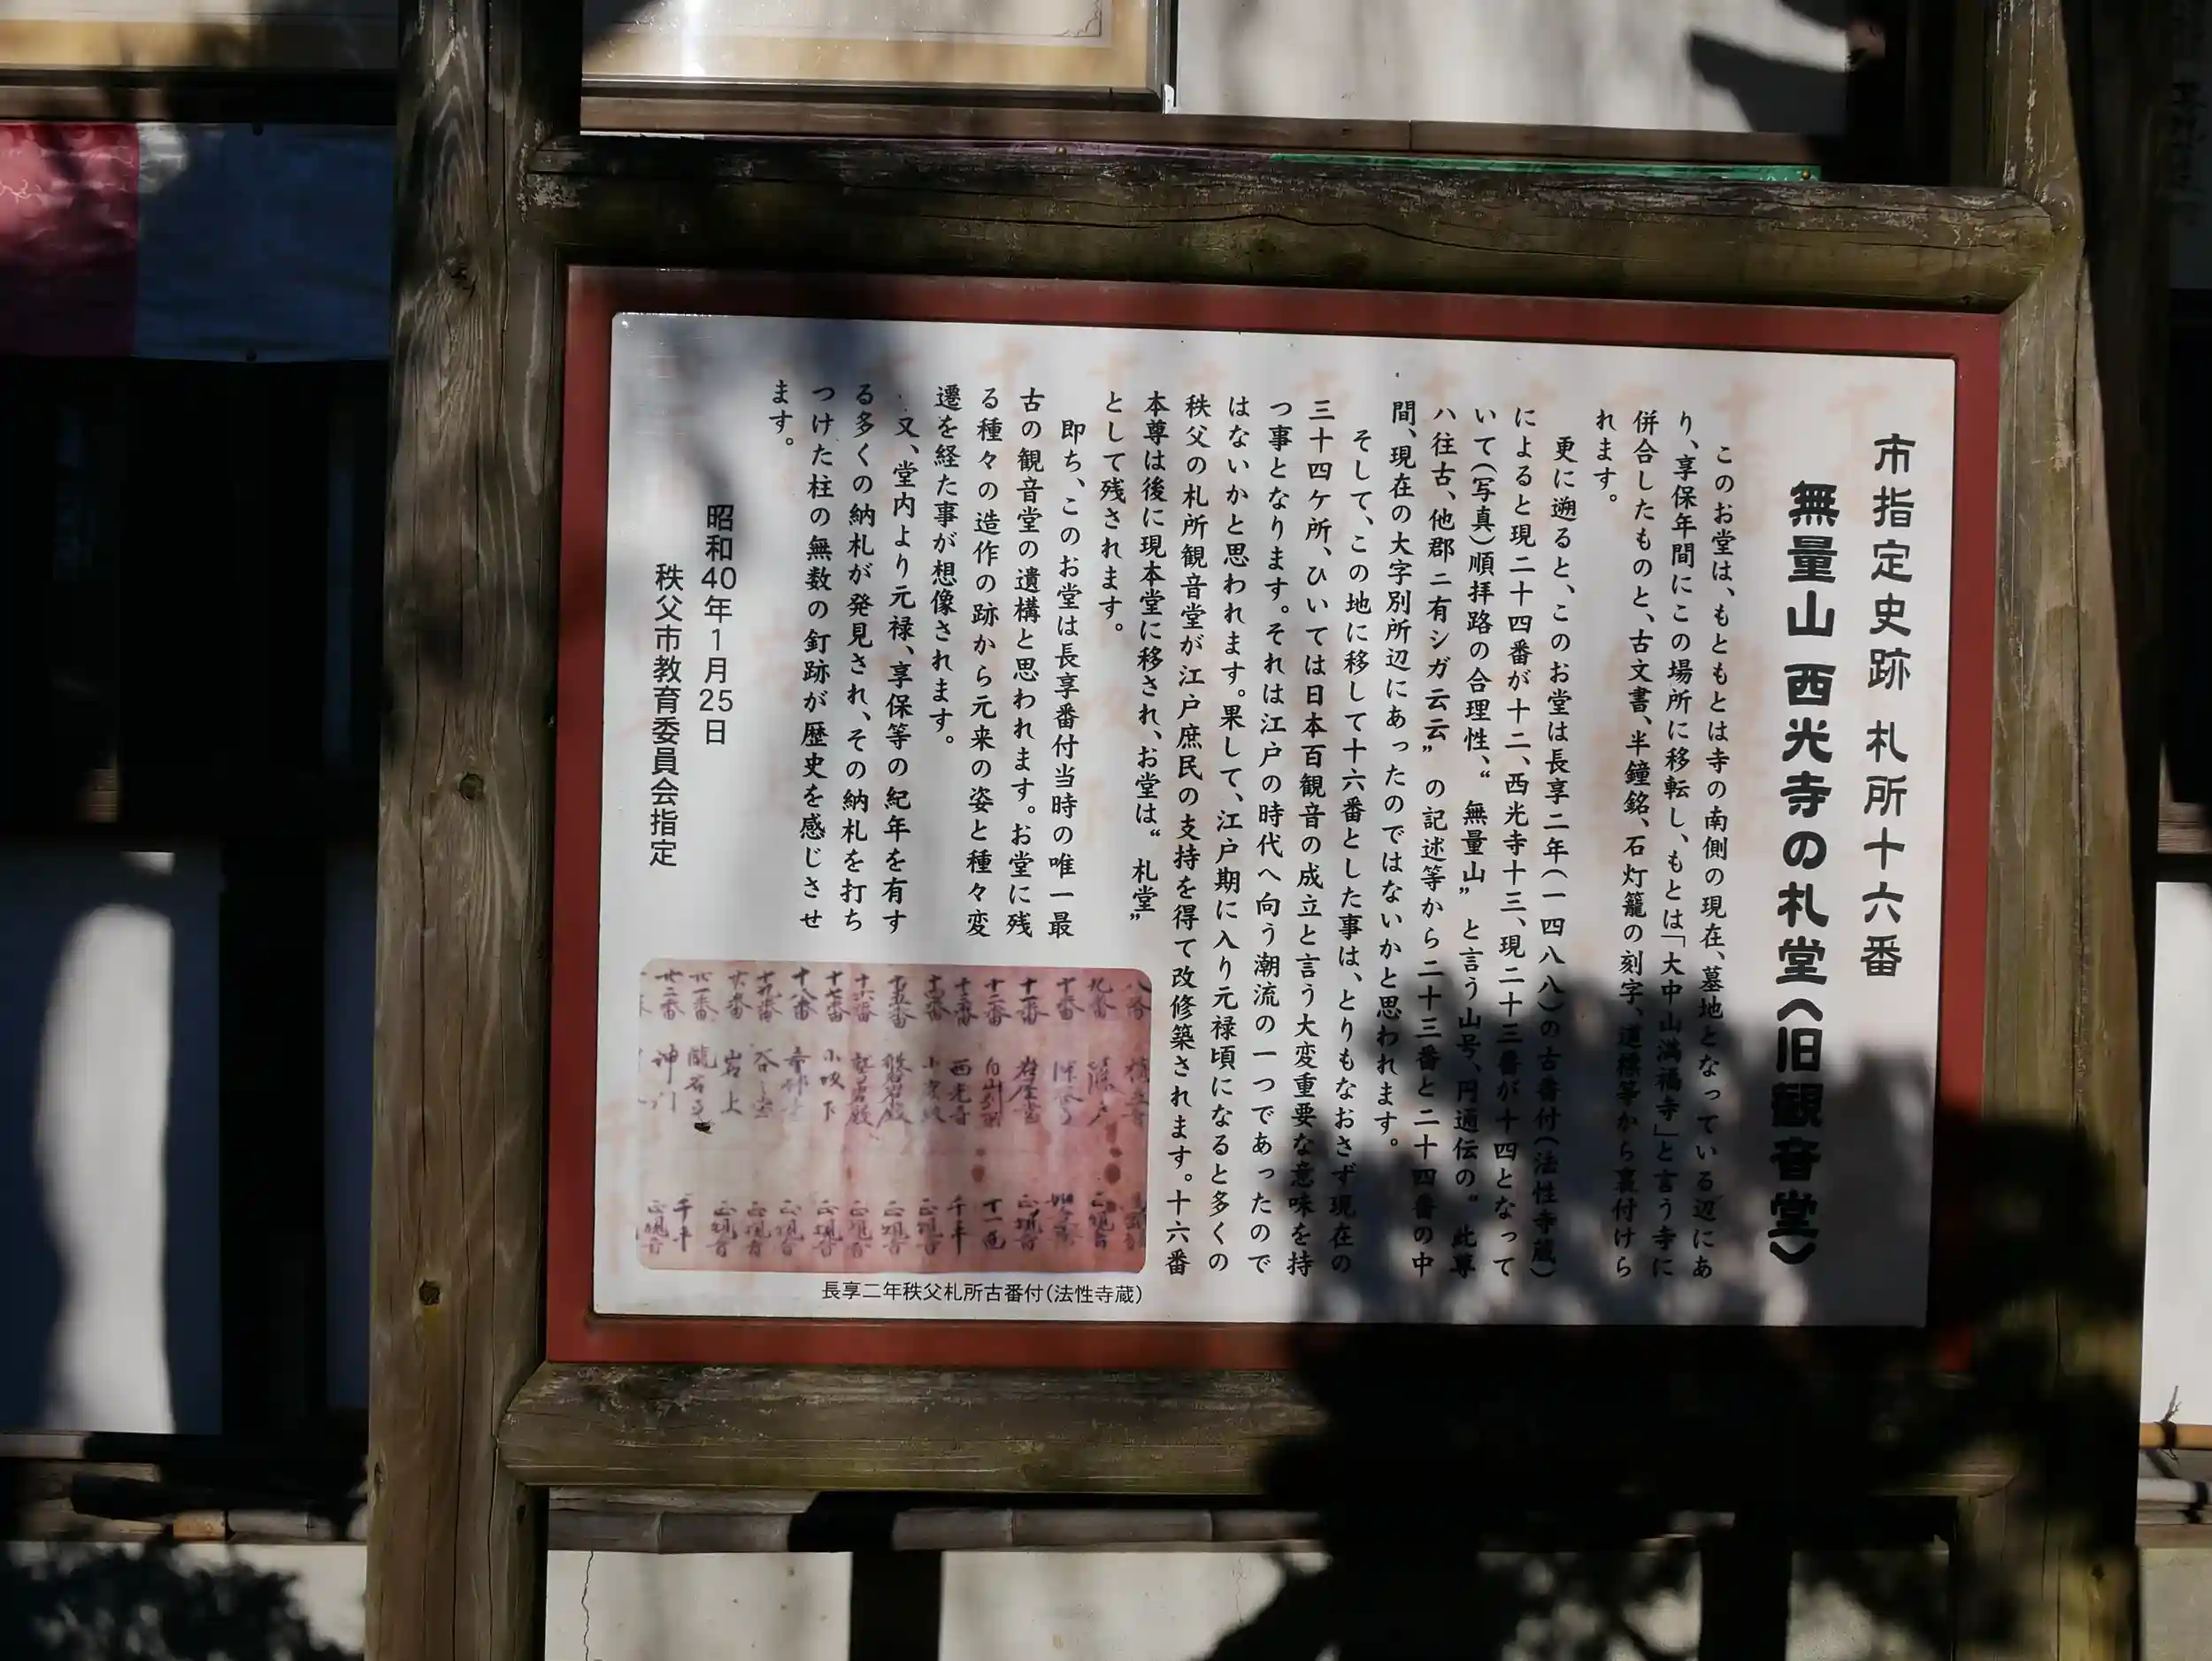 市指定史跡 札所十六番
無量山 西光寺の札堂〈旧観音堂〉
このお堂は、もともとは寺の南側の現在、墓地となっている辺にあ
り、享保年間にこの場所に移転し、もとは「大中山満福寺」と言う寺に
併合したものと、古文書、半鐘銘、石灯籠の刻字、道標等から裏付けら
れます。
更に遡ると、このお堂は長享二年(一四八八)の古番付(法性寺蔵)
によると現二十四番が十二、西光寺十三、現二十三番が十四となって
いて(写真)順拝路の合理性、“無量山”と言う山号、円通伝の“此尊
ハ往古、他郡ニ有シガ云云”の記述等から二十三番と二十四番の中
間、現在の大字別所辺にあったのではないかと思われます。
そして、この地に移して十六番とした事は、とりもなおさず現在の
三十四ケ所、ひいては日本百観音の成立と言う大変重要な意味を持
つ事となります。それは江戸の時代へ向う潮流の一つであったので
はないかと思われます。果して、江戸期に入り元禄頃になると多くの
秩父の札所観音堂が江戸庶民の支持を得て改修築されます。十六番
本尊は後に現本堂に移され、お堂は“札堂”
として残されます。
即ち、このお堂は長享番付当時の唯一最
古の観音堂の遺構と思われます。お堂に残
る種々の造作の跡から元来の姿と種々変
遷を経た事が想像されます。
又、堂内より元禄、享保等の紀年を有す
る多くの納札が発見され、その納札を打ち
つけた柱の無数の釘跡が歴史を感じさせ
ます。
昭和40年1月25日
秩父市教育委員会指定
九番
十番
十一番 正観音
十二番 十一面
十三番 西光寺 千手
十四番 正観音
十五番 正観音
十六番 正観音
十七番 小坂下 正観音
十八番 正観音
十九番 正観音
廿番 岩上 正観音
廿一番 龍石寺 千手
廿二番 神門 正観音
長享二年秩父札所古番付(法性寺蔵)